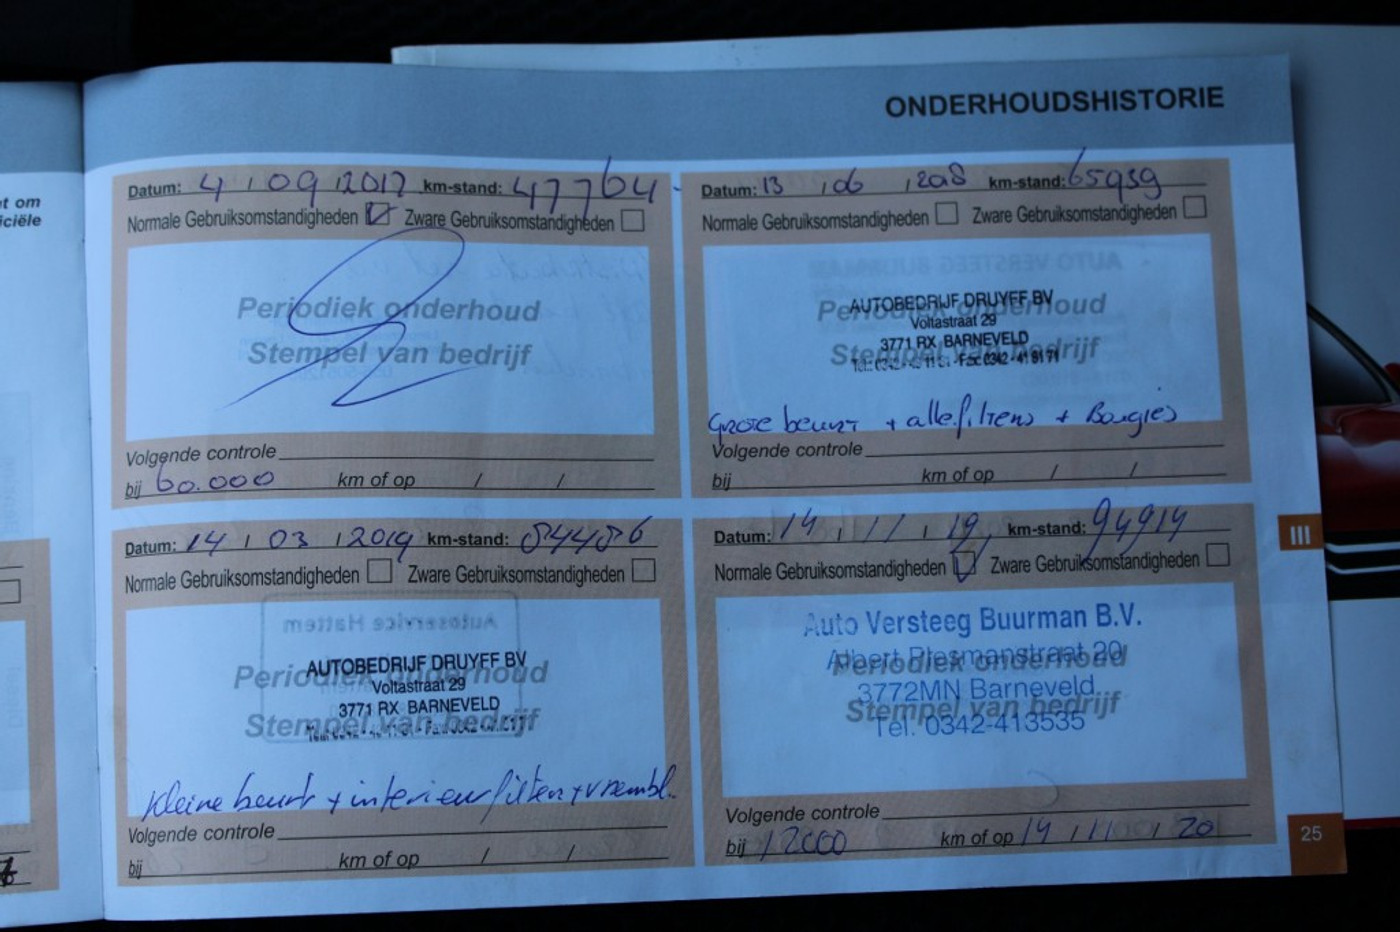 ONDERHOUDSHISTORIE
t om
iciële
Datum: 4 / 09 / 2017 km-stand: 47764
Normale Gebruiksomstandigheden Zware Gebruiksomstandigheden
Periodiek onderhoud
Stempel van bedrijf
Volgende controle
bij 60.000 km of op / /
Datum: 13 / 06 / 2018 km-stand: 65939
Normale Gebruiksomstandigheden Zware Gebruiksomstandigheden
Periodiek onderhoud
Stempel van bedrijf
AUTOBEDRIJF DRUYFF BV
Voltastraat 29
3771 RX BARNEVELD
Grote beurt + alle filters + Bougies
Volgende controle
bij km of op / /
Datum: 14 / 03 / 2019 km-stand: 84486
Normale Gebruiksomstandigheden Zware Gebruiksomstandigheden
Periodiek onderhoud
Stempel van bedrijf
AUTOBEDRIJF DRUYFF BV
Voltastraat 29
3771 RX BARNEVELD
Kleine beurt + interieurfilter +
Volgende controle
bij km of op / /
Datum: 14 / 11 / 19 km-stand: 94914
Normale Gebruiksomstandigheden Zware Gebruiksomstandigheden
Periodiek onderhoud
Stempel van bedrijf
Auto Versteeg Buurman B.V.
Albert Plesmanstraat 20
3772MN Barneveld
Tel. 0342-413535
Volgende controle
bij 12000 km of op 14 / 11 / 20
III
25